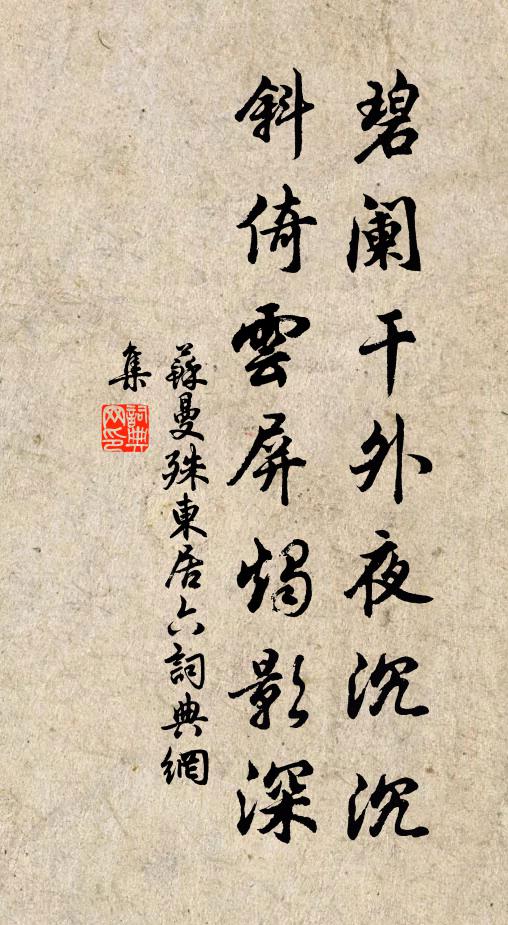 碧阑干外夜沉沉
斜倚雲屏燭影深
蘇曼殊東居六詞典網
集
詞典網印